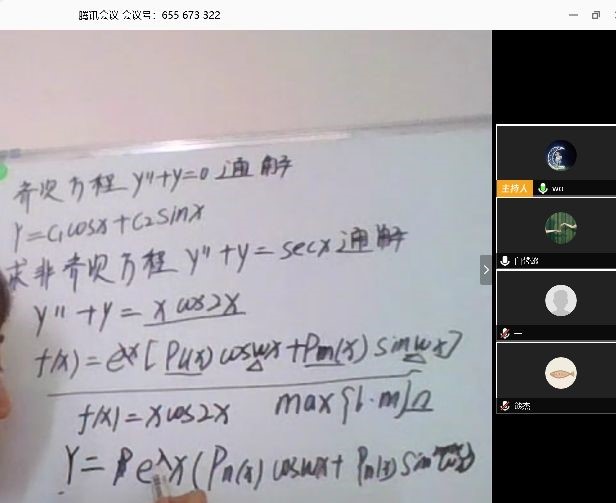 腾讯会议 会议号：655 673 322
齐次方程 y"+y=0 通解
Y=C₁cosx+C₂sinx
求非齐次方程 y"+y=secx 通解
y"+y=x cos2x
f(x)=eλx[Pl(x)cosωx+Pm(x)sinωx]
f(x)=xcos2x max{l·m}
Y= eλx(Pn(x)cosωx+Pn(x)sin
主持人 wo
一